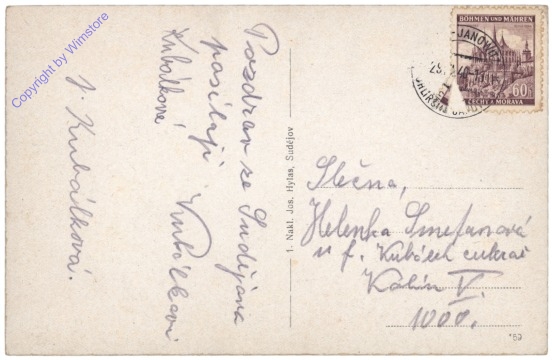 Copyright by Wimstore
Pozdrav ze Sudějova
posílají Kubátkovi
Kubátkova
J. Kubátková.
1. Nakl. Jos. Hylas, Sudějov
BÖHMEN UND MÄHREN
60
ČECHY A MORAVA
Slečna,
Helenka Smetanová
u f. Kubásek cukrář
Kolín V.
1000.
*59